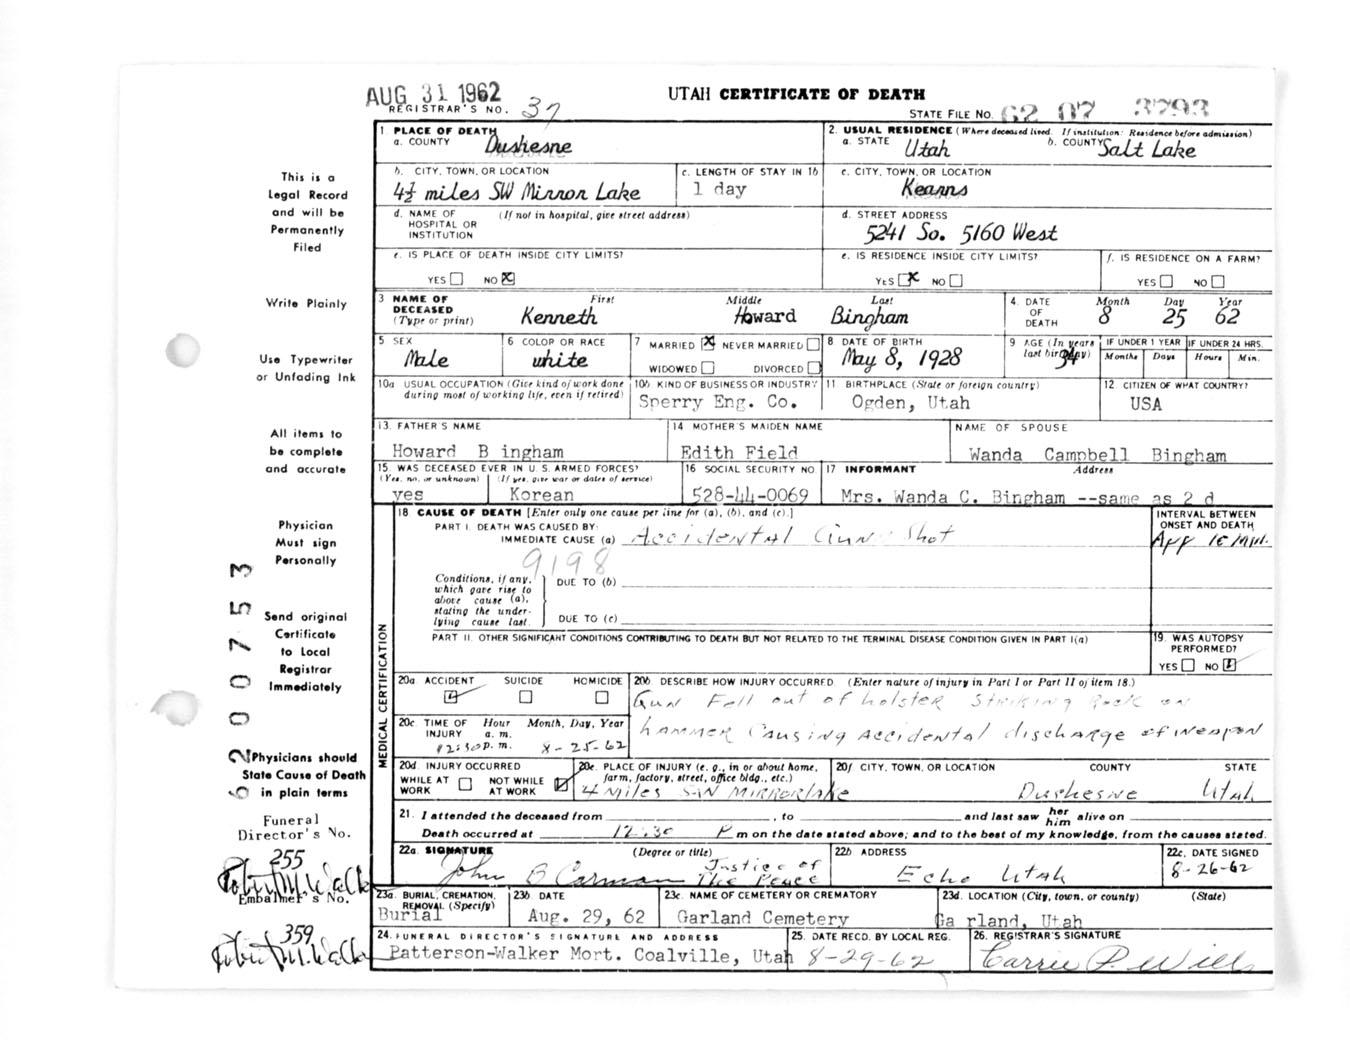 AUG 31 1962
UTAH CERTIFICATE OF DEATH
REGISTRAR'S NO. 37
STATE FILE NO. 62 07 3793
This is a
Legal Record
and will be
Permanently
Filed
Write Plainly
Use Typewriter
or Unfading Ink
All items to
be complete
and accurate
Physician
Must sign
Personally
Send original
Certificate
to Local
Registrar
Immediately
Physicians should
State Cause of Death
in plain terms
Funeral
Director's No.
255
Embalmer's No.
359
62 00753
1. PLACE OF DEATH
a. COUNTY Dushesne
2. USUAL RESIDENCE (Where deceased lived. If institution: Residence before admission)
a. STATE Utah b. COUNTY Salt Lake
b. CITY, TOWN, OR LOCATION
4½ miles SW Mirror Lake
c. LENGTH OF STAY IN 1b
1 day
c. CITY, TOWN, OR LOCATION
Kearns
d. NAME OF HOSPITAL OR INSTITUTION (If not in hospital, give street address)
d. STREET ADDRESS
5241 So. 5160 West
e. IS PLACE OF DEATH INSIDE CITY LIMITS?
YES NO X
e. IS RESIDENCE INSIDE CITY LIMITS?
YES X NO
f. IS RESIDENCE ON A FARM?
YES NO
3 NAME OF DECEASED (Type or print)
First Middle Last
Kenneth Howard Bingham
4. DATE OF DEATH
Month Day Year
8 25 62
5 SEX
Male
6 COLOR OR RACE
white
7 MARRIED X NEVER MARRIED
WIDOWED DIVORCED
8 DATE OF BIRTH
May 8, 1928
9 AGE (In years last birthday)
34
IF UNDER 1 YEAR
Months Days
IF UNDER 24 HRS.
Hours Min.
10a USUAL OCCUPATION (Give kind of work done during most of working life, even if retired)
10b KIND OF BUSINESS OR INDUSTRY
Sperry Eng. Co.
11 BIRTHPLACE (State or foreign country)
Ogden, Utah
12 CITIZEN OF WHAT COUNTRY?
USA
13. FATHER'S NAME
Howard B ingham
14 MOTHER'S MAIDEN NAME
Edith Field
NAME OF SPOUSE
Wanda Campbell Bingham
15 WAS DECEASED EVER IN U.S. ARMED FORCES?
(Yes, no, or unknown) (If yes, give war or dates of service)
yes Korean
16 SOCIAL SECURITY NO.
528-44-0069
17 INFORMANT Address
Mrs. Wanda C. Bingham --same as 2 d
MEDICAL CERTIFICATION
18 CAUSE OF DEATH [Enter only one cause per line for (a), (b), and (c).]
PART I. DEATH WAS CAUSED BY:
IMMEDIATE CAUSE (a) Accidental Gun Shot
INTERVAL BETWEEN
ONSET AND DEATH
App 10 Min.
9198
Conditions, if any, which gave rise to above cause (a), stating the underlying cause last.
DUE TO (b)
DUE TO (c)
PART II. OTHER SIGNIFICANT CONDITIONS CONTRIBUTING TO DEATH BUT NOT RELATED TO THE TERMINAL DISEASE CONDITION GIVEN IN PART I(a)
19. WAS AUTOPSY PERFORMED?
YES NO
20a ACCIDENT SUICIDE HOMICIDE
20b DESCRIBE HOW INJURY OCCURRED. (Enter nature of injury in Part I or Part II of item 18.)
Gun Fell out of holster Striking Rock on
hammer Causing Accidental discharge of weapon
20c. TIME OF INJURY Hour a.m. p.m. Month, Day, Year
12:30 8-25-62
20d. INJURY OCCURRED
WHILE AT WORK NOT WHILE AT WORK
20e. PLACE OF INJURY (e. g., in or about home, farm, factory, street, office bldg., etc.)
4 Miles SW Mirror lake
20f CITY, TOWN, OR LOCATION COUNTY STATE
Dushesne Utah
21. I attended the deceased from , to and last saw her him alive on
Death occurred at 12:30 P m on the date stated above; and to the best of my knowledge, from the causes stated.
22a. SIGNATURE (Degree or title)
John B Carman Justice of The Peace
22b ADDRESS
Echo Utah
22c. DATE SIGNED
8-26-62
23a. BURIAL, CREMATION, REMOVAL (Specify)
Burial
23b DATE
Aug. 29, 62
23c NAME OF CEMETERY OR CREMATORY
Garland Cemetery
23d. LOCATION (City, town, or county) (State)
Ga rland, Utah
24. FUNERAL DIRECTOR'S SIGNATURE AND ADDRESS
Patterson-Walker Mort. Coalville, Utah
25. DATE RECD. BY LOCAL REG.
8-29-62
26. REGISTRAR'S SIGNATURE
Carrie P. Wills